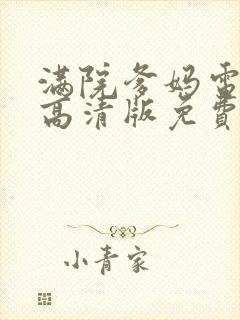 满院爹妈雷
高清版免费
小青家